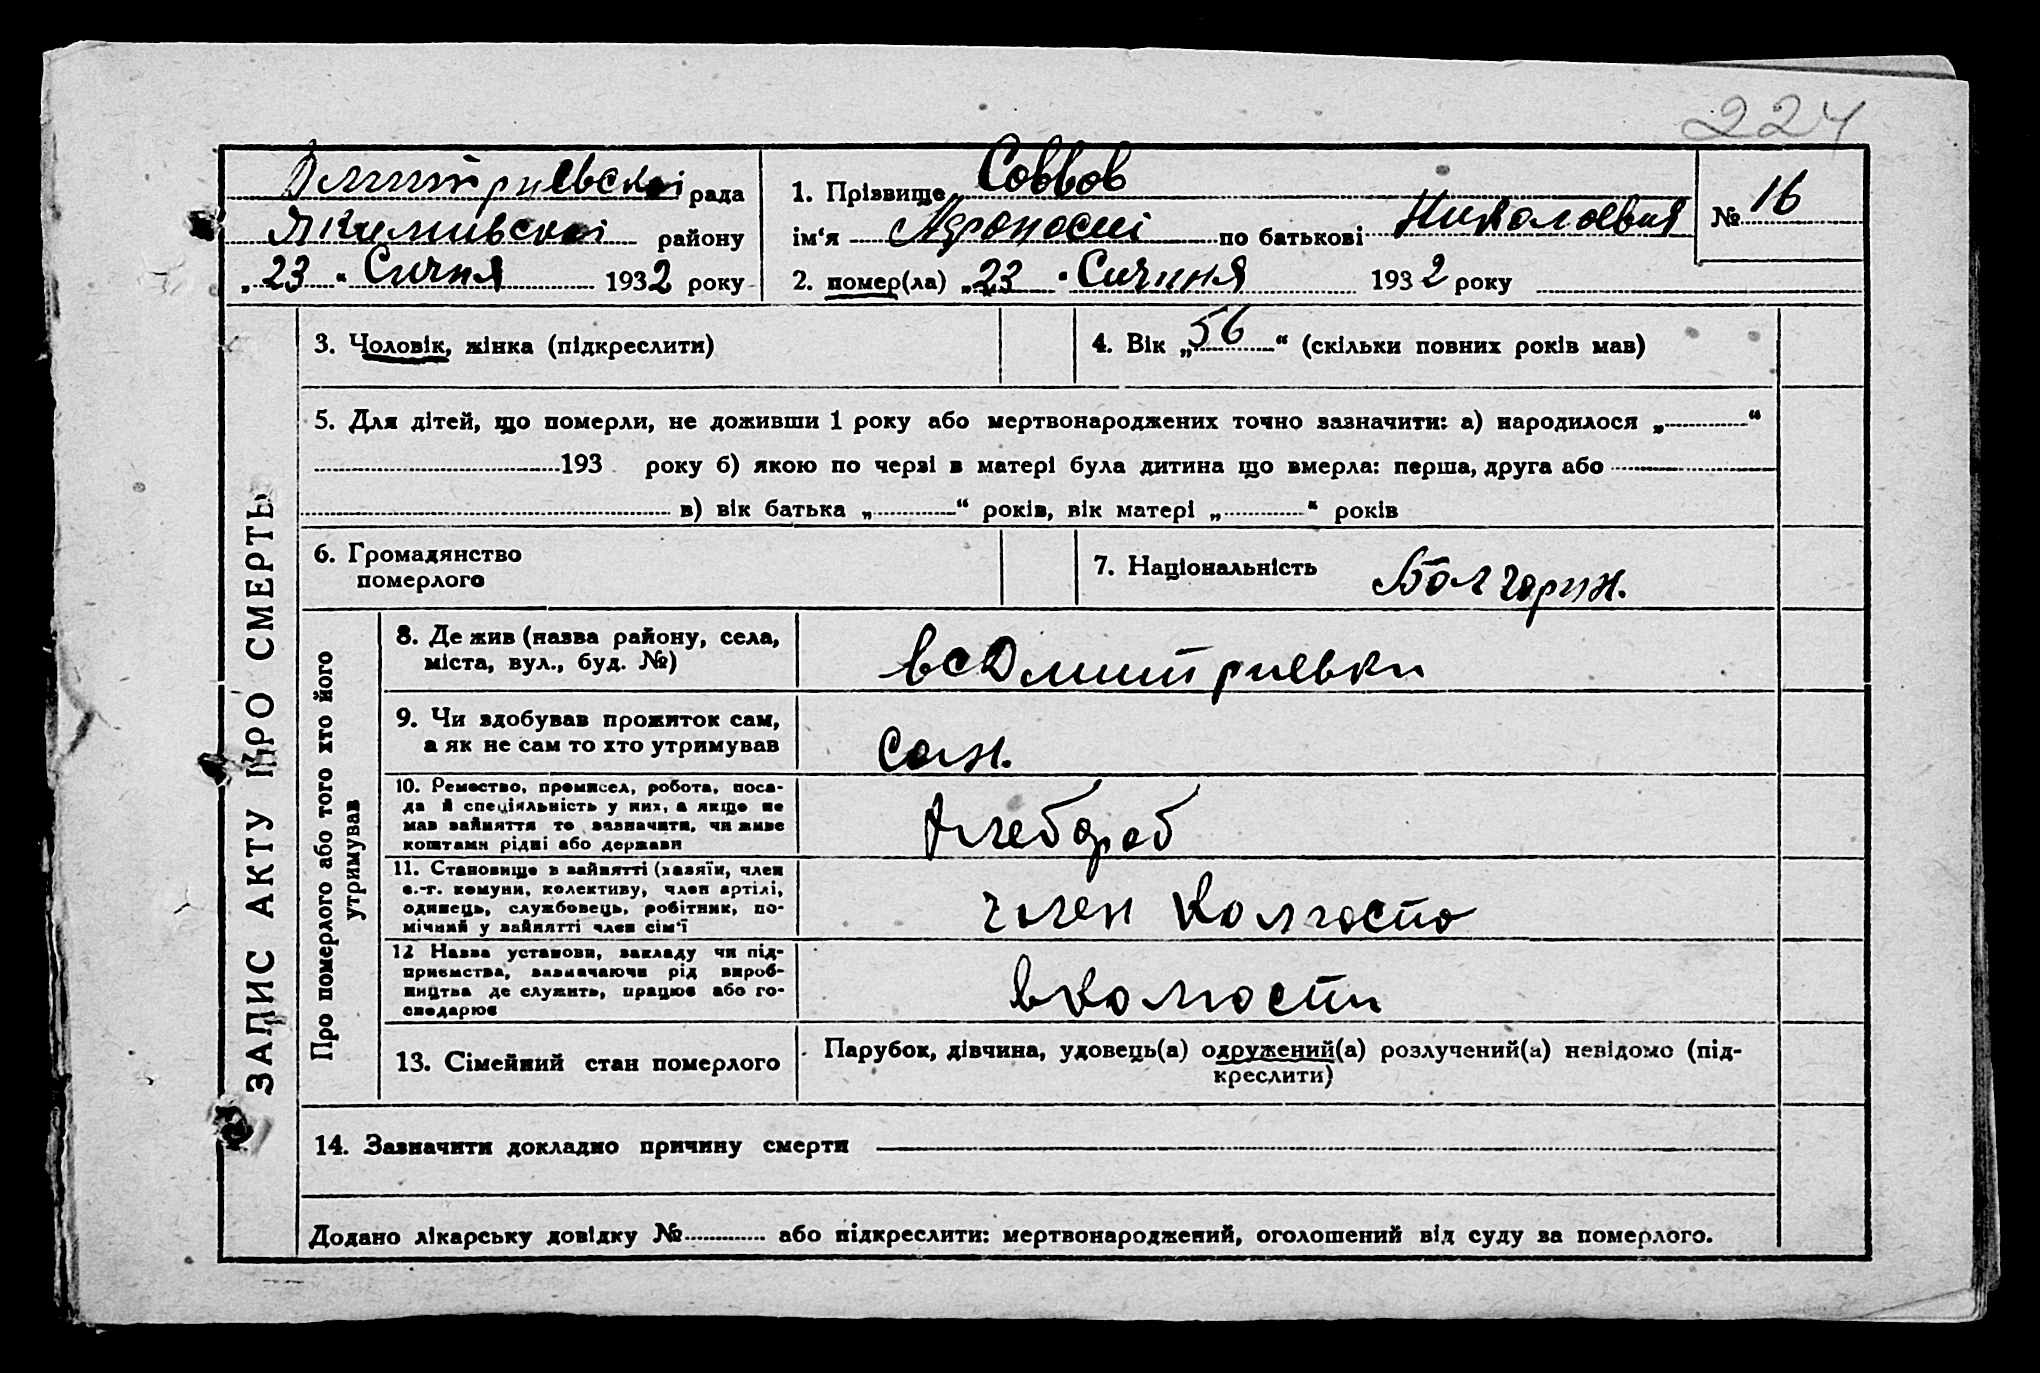 224
Дмитриевскої рада
Якимивскої району
„23“ Сичня 1932 року
1. Прізвище Соввов
ім‘я Афонасий по батькові Николаевия
№ 16
2. помер(ла) „23“ Сичння 1932 року
3. Чоловік, жінка (підкреслити)
4. Вік „56“ (скільки повних років мав)
5. Для дітей, що померли, не доживши 1 року або мертвонароджених точно зазначити: а) народилося „ “
193 року б) якою по черзі в матері була дитина що вмерла: перша, друга або
в) вік батька „ “ років, вік матері „ “ років
6. Громадянство
померлого
7. Національність Болгарин.
ЗАПИС АКТУ ПРО СМЕРТЬ
Про померлого або того хто його
утримував
8. Де жив (назва району, села,
міста, вул., буд. №)
в с Дмитриевки
9. Чи здобував прожиток сам,
а як не сам то хто утримував
сам.
10. Ремество, промисел, робота, поса-
да й спеціяльність у них, а якщо не
мав зайняття то зазначити, чи живе
коштами рідні або держави
Хлебороб
11. Становище в зайнятті (хазяїн, член
с.-г. комуни, колективу, член артілі,
одинець, службовець, робітник, по-
мічний у зайнятті член сім‘ї
член Колгоспо
12 Назва установи, закладу чи під-
приємства, зазначаючи рід вироб-
ництва де служить, працює або го-
сподарює
в колгоспи
13. Сімейний стан померлого
Парубок, дівчина, удовець(а) одружений(а) розлучений(а) невідомо (під-
креслити)
14. Зазначити докладно причину смерти
Додано лікарську довідку № або підкреслити: мертвонароджений, оголошений від суду за померлого.